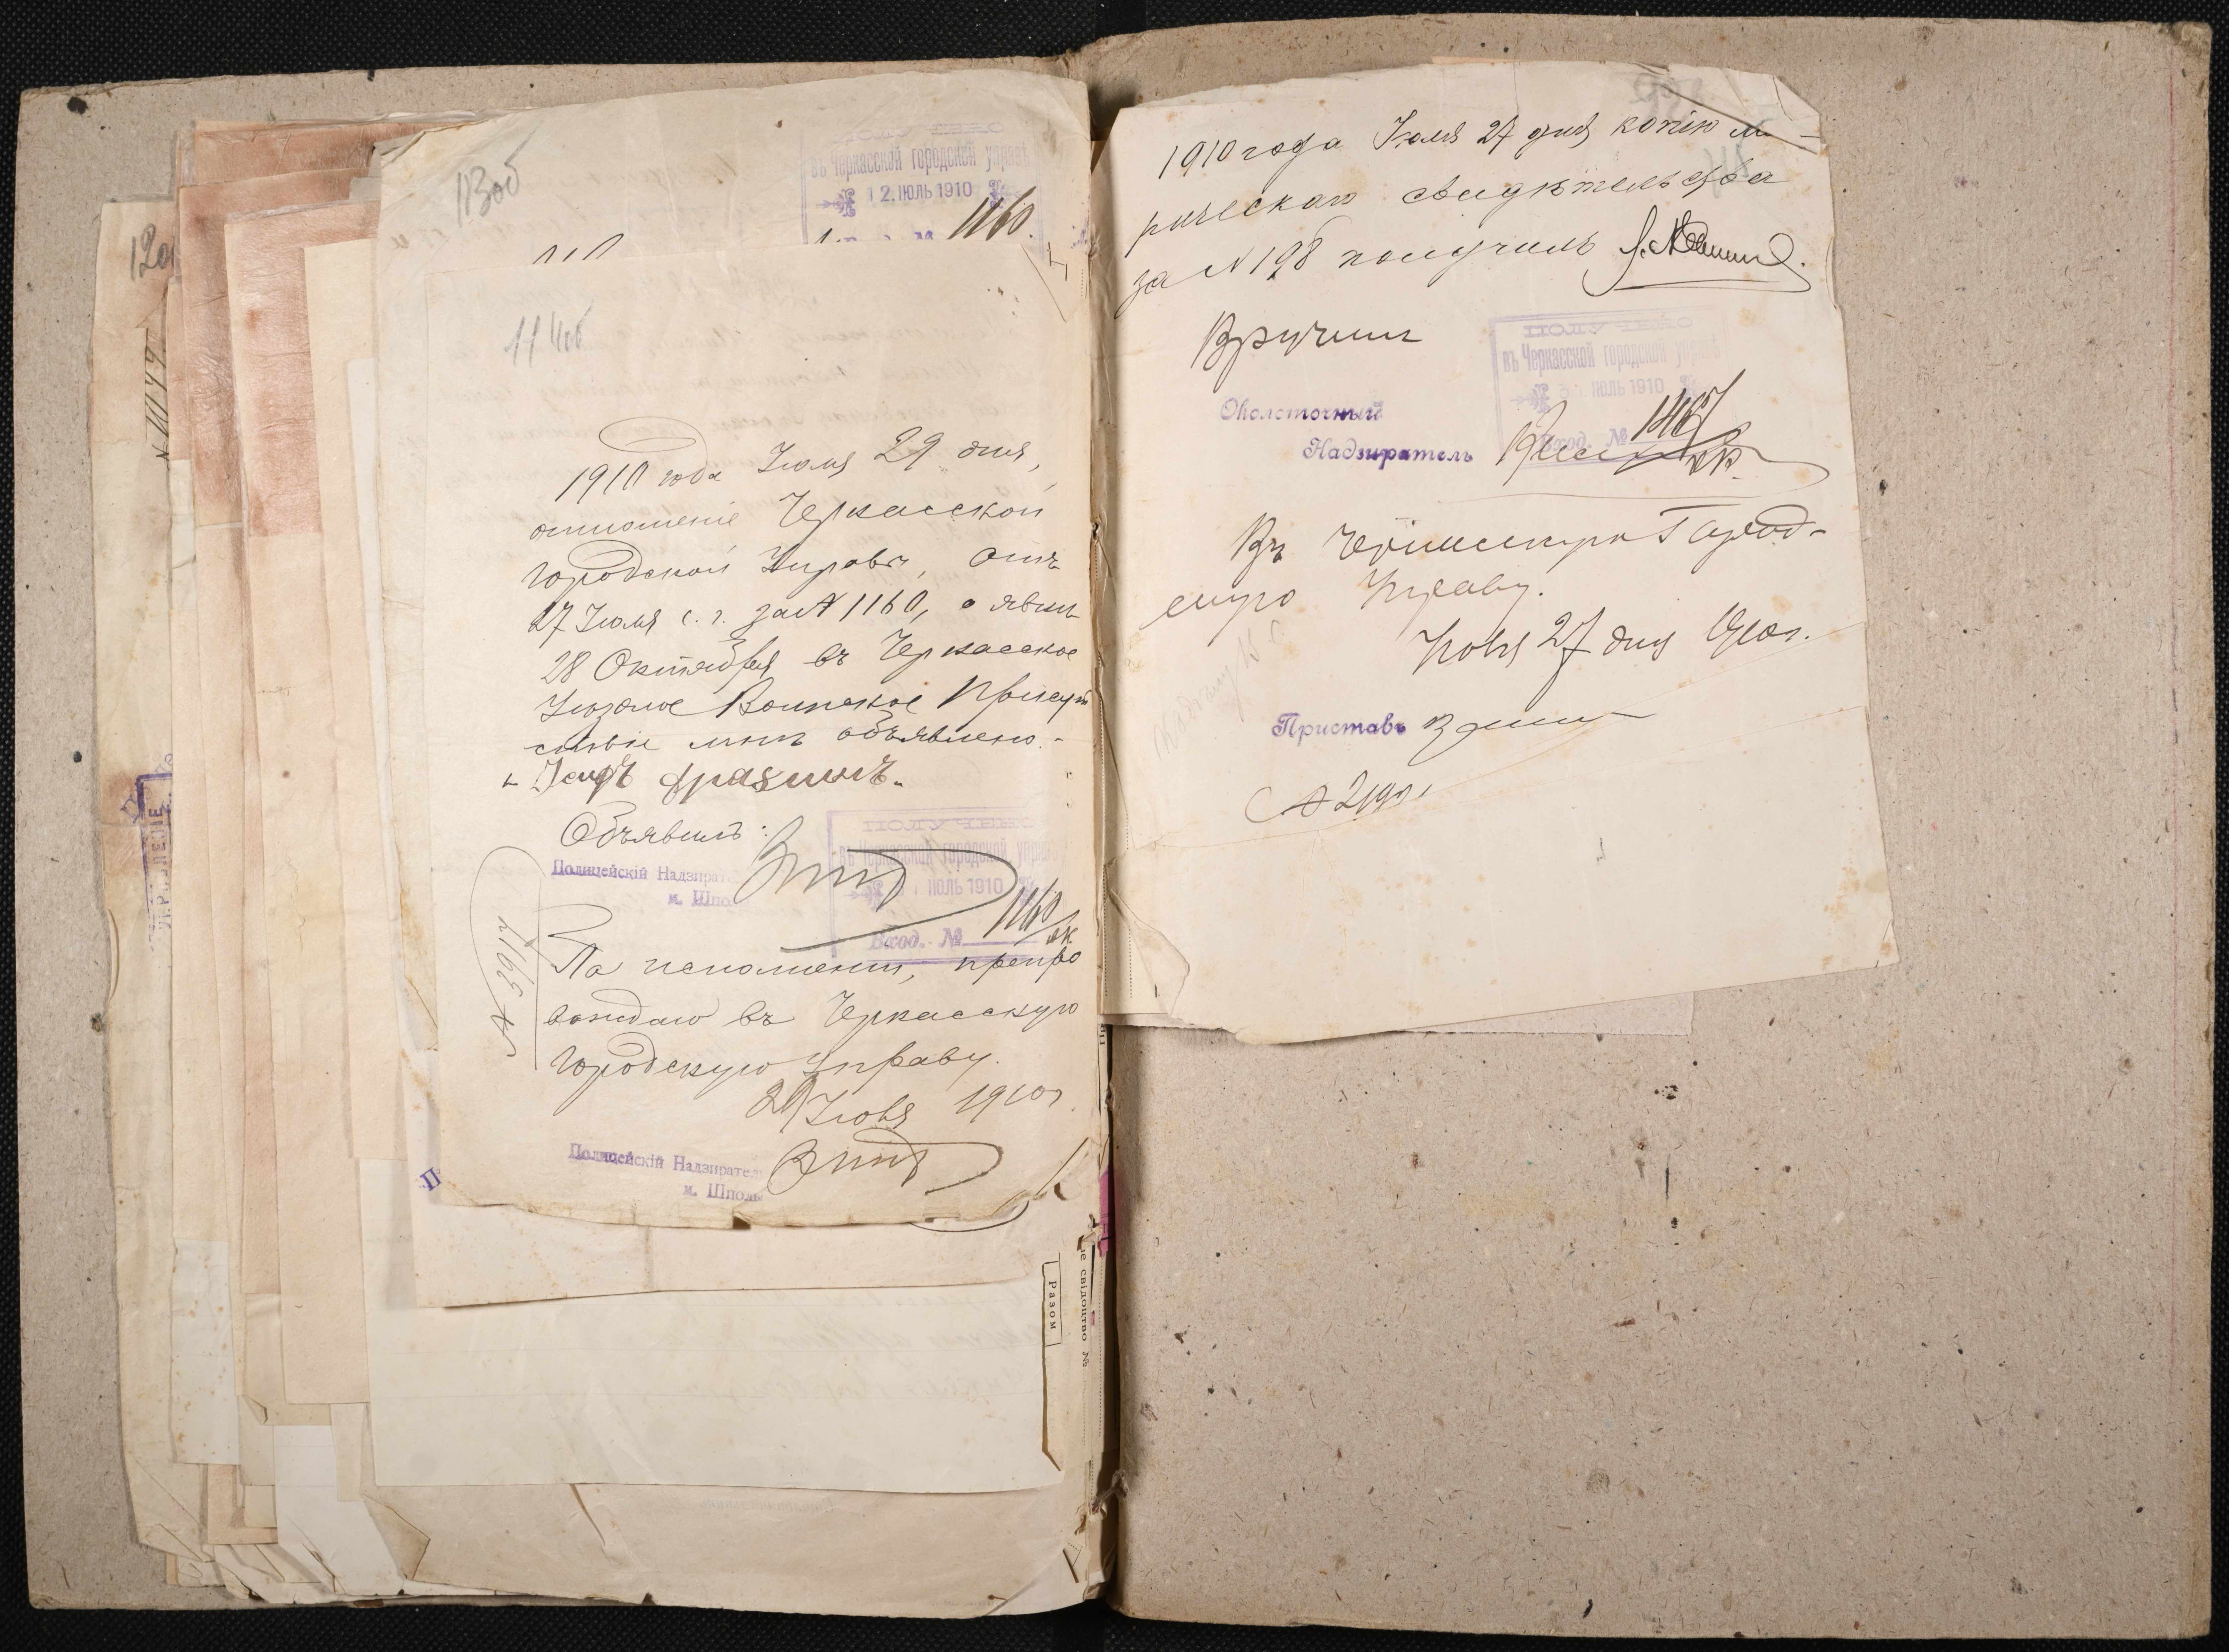 12об
№ 1049
113об
въ Черкасской городской управѣ
12. ИЮЛЬ 1910
1160.
114об
1910 года Іюля 29 дня,
отношеніе Черкасской
Городской Управы, отъ
27 Іюля с. г. за № 1160, о явкѣ
28 Октября въ Черкасское
Уѣздное Воинское Присут
ствіе мнѣ объявлено.-
Объявилъ:
Полицейскій Надзират
м. Шпо
ПОЛУЧЕНО
въ Черкасской городской управ
ИЮЛЬ 1910
Вход. № 1160
По исполненіи, препро
вождаю въ Черкасскую
Городскую Управу.
29 Іюля 1910 г.
Полицейскій Надзирател
м. Шполы
П
УПРАВЛЕНІЕ
Разом
не свідоцтво №
1910 года Іюля 27 дня копію м
рическаго свидѣтельства
за № 198 получилъ
Вручилъ
Околоточный
Надзиратель
ПОЛУЧЕНО
въ Черкасской городской управ
ИЮЛЬ 1910
Вход. № 1467
Въ Город-
скую Управу.
Іюля 27 дня 1910 г.
Приставъ